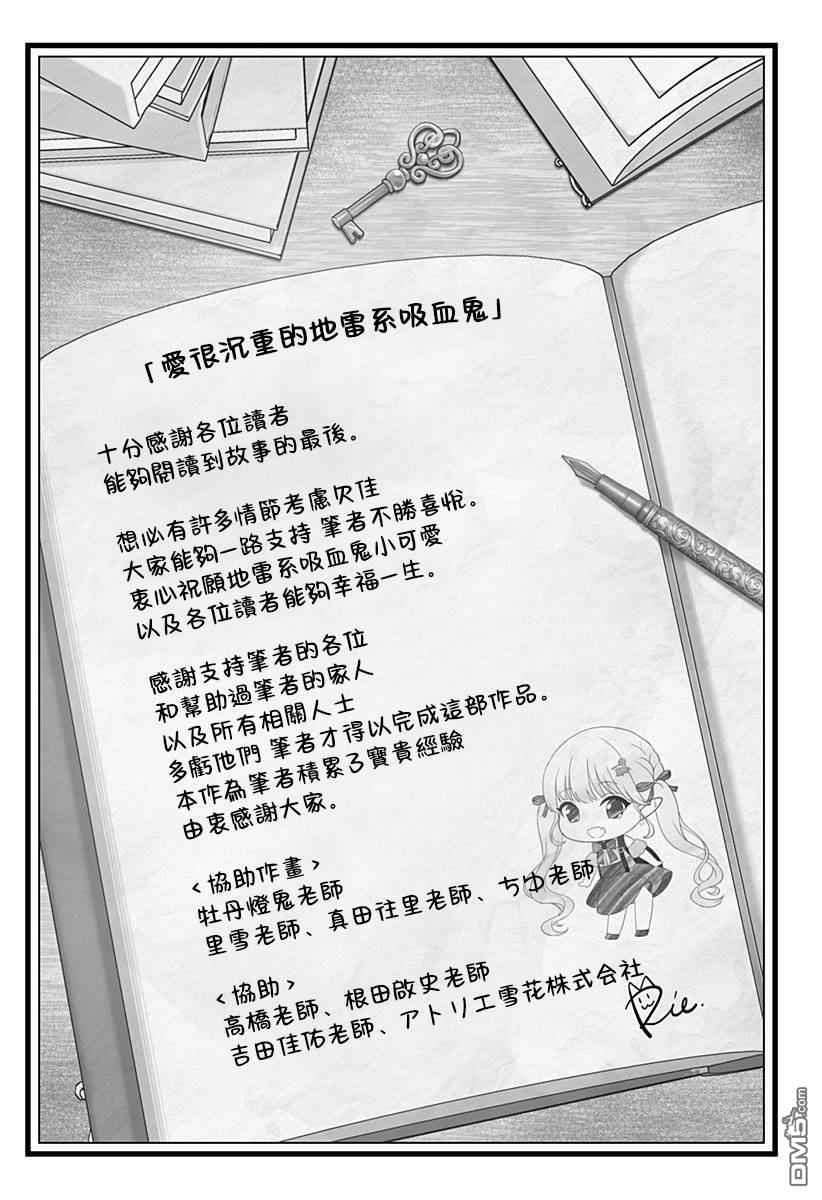 「愛很沉重的地雷系吸血鬼」
十分感謝各位讀者
能夠閱讀到故事的最後。
想必有許多情節考慮欠佳
大家能夠一路支持 筆者不勝喜悅。
衷心祝願地雷系吸血鬼小可愛
以及各位讀者能夠幸福一生。
感謝支持筆者的各位
和幫助過筆者的家人
以及所有相關人士
多虧他們 筆者才得以完成這部作品。
本作為筆者積累了寶貴經驗
由衷感謝大家。
<協助作畫>
牡丹燈鬼老師
里雪老師、真田往里老師、ちゆ老師
<協助>
高橋老師、根田啟史老師
吉田佳佑老師、アトリエ雪花株式会社
Rie.
DM5.com